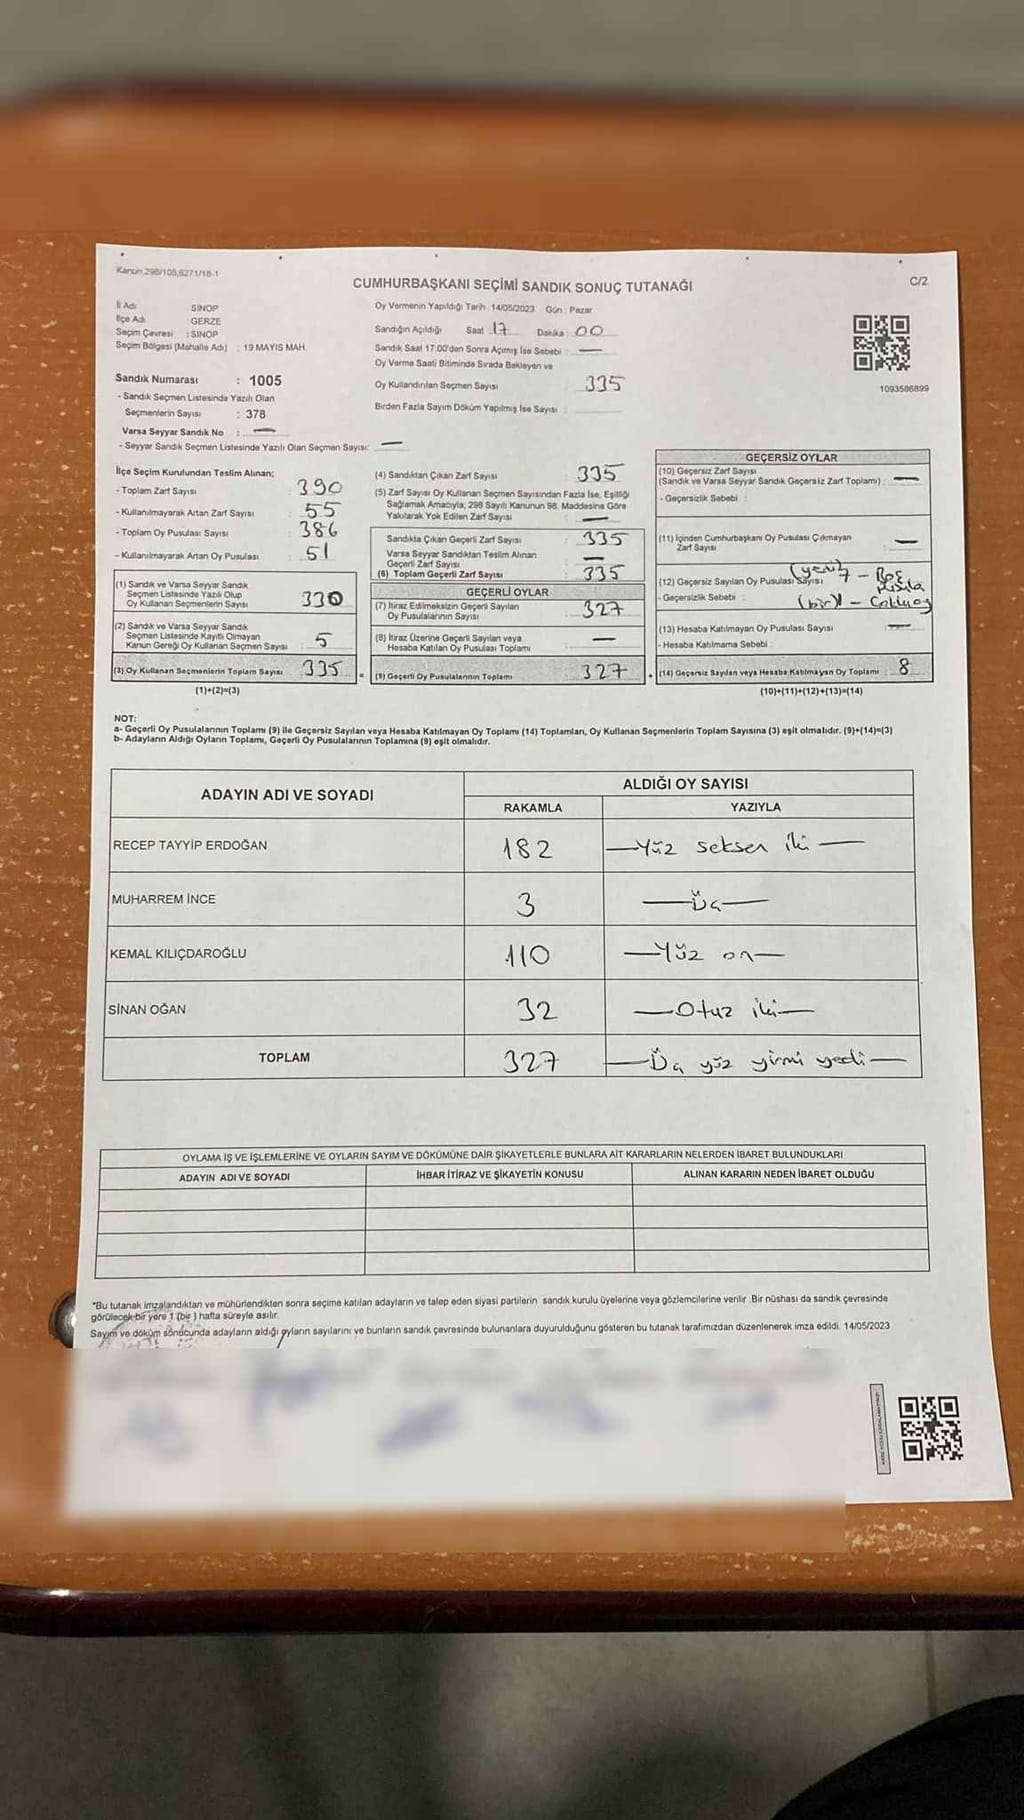 Kanun,298/105;6271/18-1
C/2
CUMHURBAŞKANI SEÇİMİ SANDIK SONUÇ TUTANAĞI
İl Adı : SİNOP
İlçe Adı : GERZE
Seçim Çevresi : SİNOP
Seçim Bölgesi (Mahalle Adı) : 19 MAYIS MAH.
Sandık Numarası : 1005
- Sandık Seçmen Listesinde Yazılı Olan
Seçmenlerin Sayısı : 378
Varsa Seyyar Sandık No : —
- Seyyar Sandık Seçmen Listesinde Yazılı Olan Seçmen Sayısı: —
Oy Vermenin Yapıldığı Tarih : 14/05/2023 Gün : Pazar
Sandığın Açıldığı Saat : 17 Dakika : 00
Sandık Saat 17.00'den Sonra Açılmış İse Sebebi : —
Oy Verme Saati Bitiminde Sırada Bekleyen ve
Oy Kullandırılan Seçmen Sayısı : 335
Birden Fazla Sayım Döküm Yapılmış İse Sayısı :
1093586899
İlçe Seçim Kurulundan Teslim Alınan;
- Toplam Zarf Sayısı : 390
- Kullanılmayarak Artan Zarf Sayısı : 55
- Toplam Oy Pusulası Sayısı : 386
- Kullanılmayarak Artan Oy Pusulası : 51
(1) Sandık ve Varsa Seyyar Sandık
Seçmen Listesinde Yazılı Olup
Oy Kullanan Seçmenlerin Sayısı : 330
(2) Sandık ve Varsa Seyyar Sandık
Seçmen Listesinde Kayıtlı Olmayan
Kanun Gereği Oy Kullanan Seçmen Sayısı : 5
(3) Oy Kullanan Seçmenlerin Toplam Sayısı : 335
(1)+(2)=(3)
(4) Sandıktan Çıkan Zarf Sayısı : 335
(5) Zarf Sayısı Oy Kullanan Seçmen Sayısından Fazla İse, Eşitliği
Sağlamak Amacıyla; 298 Sayılı Kanunun 98. Maddesine Göre
Yakılarak Yok Edilen Zarf Sayısı : —
Sandıkta Çıkan Geçerli Zarf Sayısı : 335
Varsa Seyyar Sandıktan Teslim Alınan
Geçerli Zarf Sayısı : —
(6) Toplam Geçerli Zarf Sayısı : 335
GEÇERLİ OYLAR
(7) İtiraz Edilmeksizin Geçerli Sayılan
Oy Pusulalarının Sayısı : 327
(8) İtiraz Üzerine Geçerli Sayılan veya
Hesaba Katılan Oy Pusulası Toplamı : —
(9) Geçerli Oy Pusulalarının Toplamı : 327
GEÇERSİZ OYLAR
(10) Geçersiz Zarf Sayısı
(Sandık ve Varsa Seyyar Sandık Geçersiz Zarf Toplamı) : —
- Geçersizlik Sebebi :
(11) İçinden Cumhurbaşkanı Oy Pusulası Çıkmayan
Zarf Sayısı : —
(12) Geçersiz Sayılan Oy Pusulası Sayısı : (yedi) 7 - Boş pusula
- Geçersizlik Sebebi : (bir) 1 -
(13) Hesaba Katılmayan Oy Pusulası Sayısı : —
- Hesaba Katılmama Sebebi :
(14) Geçersiz Sayılan veya Hesaba Katılmayan Oy Toplamı : 8
(10)+(11)+(12)+(13)=(14)
NOT:
a- Geçerli Oy Pusulalarının Toplamı (9) ile Geçersiz Sayılan veya Hesaba Katılmayan Oy Toplamı (14) Toplamları, Oy Kullanan Seçmenlerin Toplam Sayısına (3) eşit olmalıdır. (9)+(14)=(3)
b- Adayların Aldığı Oyların Toplamı, Geçerli Oy Pusulalarının Toplamına (9) eşit olmalıdır.
ADAYIN ADI VE SOYADI ALDIĞI OY SAYISI
RAKAMLA YAZIYLA
RECEP TAYYİP ERDOĞAN 182 —Yüz seksen iki—
MUHARREM İNCE 3 —Üç—
KEMAL KILIÇDAROĞLU 110 —Yüz on—
SİNAN OĞAN 32 —Otuz iki—
TOPLAM 327 —Üç yüz yirmi yedi—
OYLAMA İŞ VE İŞLEMLERİNE VE OYLARIN SAYIM VE DÖKÜMÜNE DAİR ŞİKAYETLERLE BUNLARA AİT KARARLARIN NELERDEN İBARET BULUNDUKLARI
ADAYIN ADI VE SOYADI İHBAR İTİRAZ VE ŞİKAYETİN KONUSU ALINAN KARARIN NEDEN İBARET OLDUĞU
*Bu tutanak imzalandıktan ve mühürlendikten sonra seçime katılan adayların ve talep eden siyasi partilerin sandık kurulu üyelerine veya gözlemcilerine verilir .Bir nüshası da sandık çevresinde
görülecek bir yere 1 (bir ) hafta süreyle asılır.
Sayım ve döküm sonucunda adayların aldığı oyların sayılarını ve bunların sandık çevresinde bulunanlara duyurulduğunu gösteren bu tutanak tarafımızdan düzenlenerek imza edildi. 14/05/2023